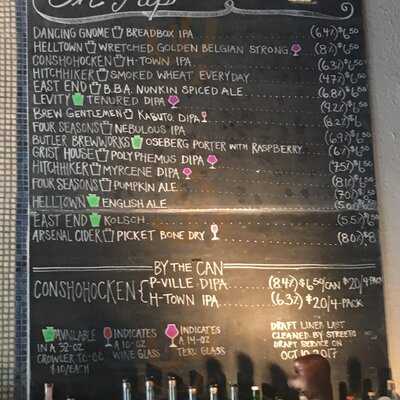 On Tap
DANCING GNOME BREADBOX IPA (6.4%) $6.50
HELLTOWN WRETCHED GOLDEN BELGIAN STRONG (8%) $6.50
CONSHOHOCKEN H-TOWN IPA (6.3%) $6.50
HITCHHIKER SMOKED WHEAT EVERYDAY (4.7%) $6.50
EAST END B.B.A. NUNKIN SPICED ALE (6.8%) $6.50
LEVITY TENURED DIPA
BREW GENTLEMEN KABUTO DIPA
FOUR SEASONS NEBULOUS IPA
BUTLER BREWWORKS OSEBERG PORTER WITH RASPBERRY
GRIST HOUSE POLYPHEMUS DIPA
HITCHHIKER MYRCENE DIPA
FOUR SEASONS PUMPKIN ALE
HELLTOWN ENGLISH ALE
EAST END KOLSCH
ARSENAL CIDER PICKET BONE DRY (8.0%) $8
BY THE CAN
CONSHOHOCKEN { P-VILLE DIPA (8.4%) $6.50/CAN $20/4-PACK
H-TOWN IPA (6.3%) $20/4-PACK
AVAILABLE IN A 32-OZ CROWLER TO-GO $10/EACH
INDICATES A 10-OZ WINE GLASS
INDICATES A 14-OZ TEKU GLASS
DRAFT LINES LAST
CLEANED BY
DRAFT SERVICE ON
OCT 10 2017